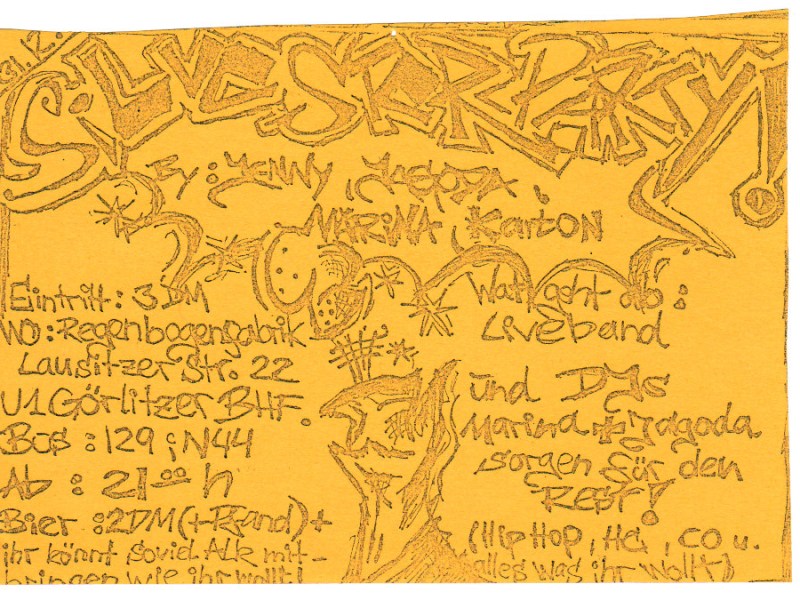 31.12.
SILVESTER PARTY!
By: YENNY, JAGODA,
MARINA, KARTON
Eintritt: 3 DM
WO: Regenbogengabrik
Lausitzer Str. 22
U1 Görlitzer BHF.
Bus: 129; N44
Ab: 21⁰⁰ h
Bier: 2DM (+Pfand) +
ihr könnt soviel Alk mit-
bringen wie ihr wollt!
Watt geht ab:
Liveband
und DJs
Marina + Jagoda
sorgen für den
Rest!
(HipHop, HC, CO u.
alles was ihr wollt)